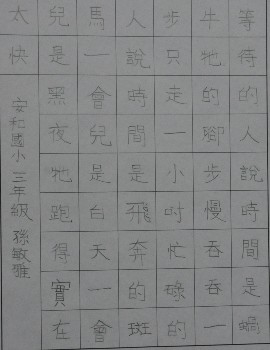 等待的人說時間是蝸
牛牠的腳步慢吞吞一
步只走一小吋忙碌的
人說時間是飛奔的斑
馬一會兒是白天一會
兒是黑夜牠跑得實在
太快
安和國小 三年級 孫敏雅